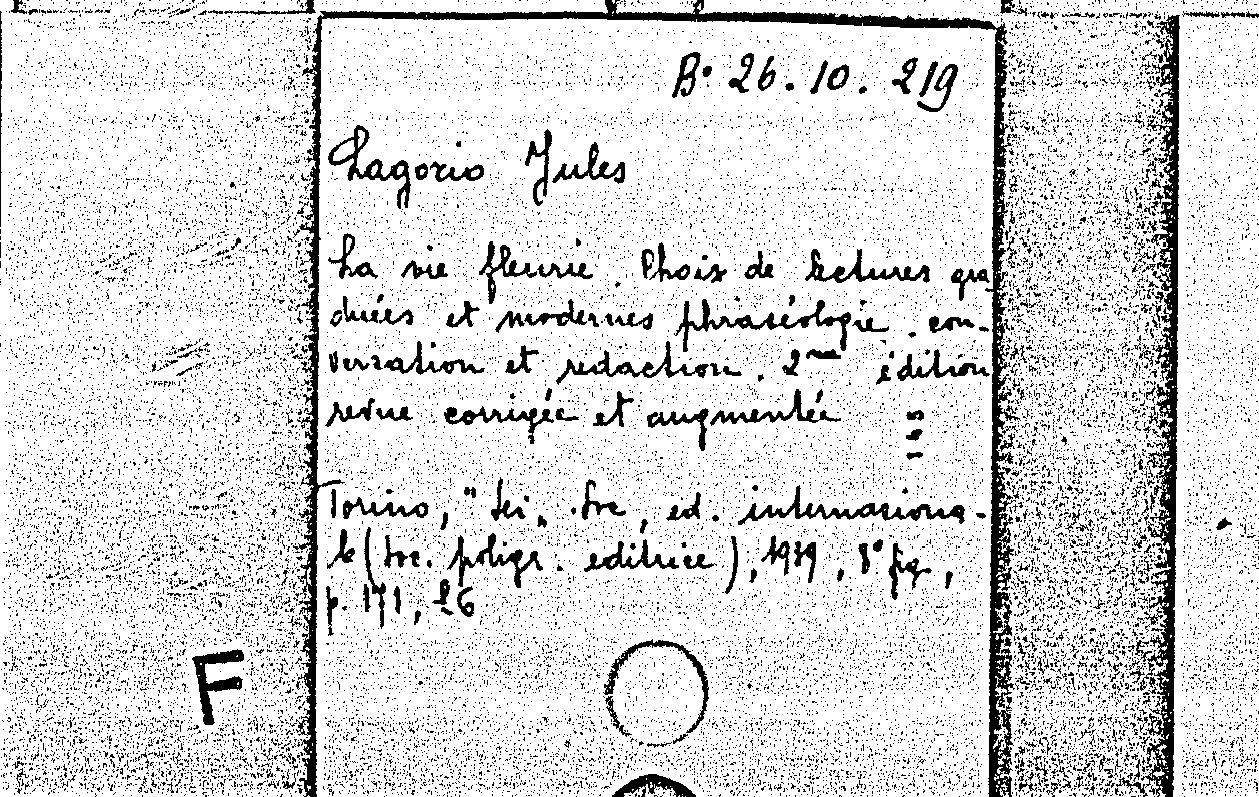 B° 26.10.219
Lagorio Jules
La vie fleurie. Choix de lectures gra
duées et modernes phraséologie. con-
versation et redaction. 2me édition
revue corrigée et augmentée
Torino, "Sei" Soc, ed. internaziona-
le (Soc. poligr. editrice), 1919, 8° fig,
p. 171, 26
F